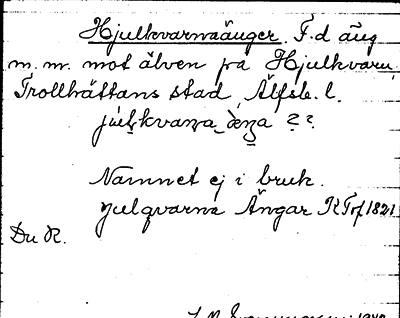 Hjulkvarnaängar. F.d äng
m.m. mot älven på Hjulkvarn,
Trollhättans stad, Älfsb. l.
Namnet ej i bruk.
Julqvarna Ängar KTof 1821
Du R.